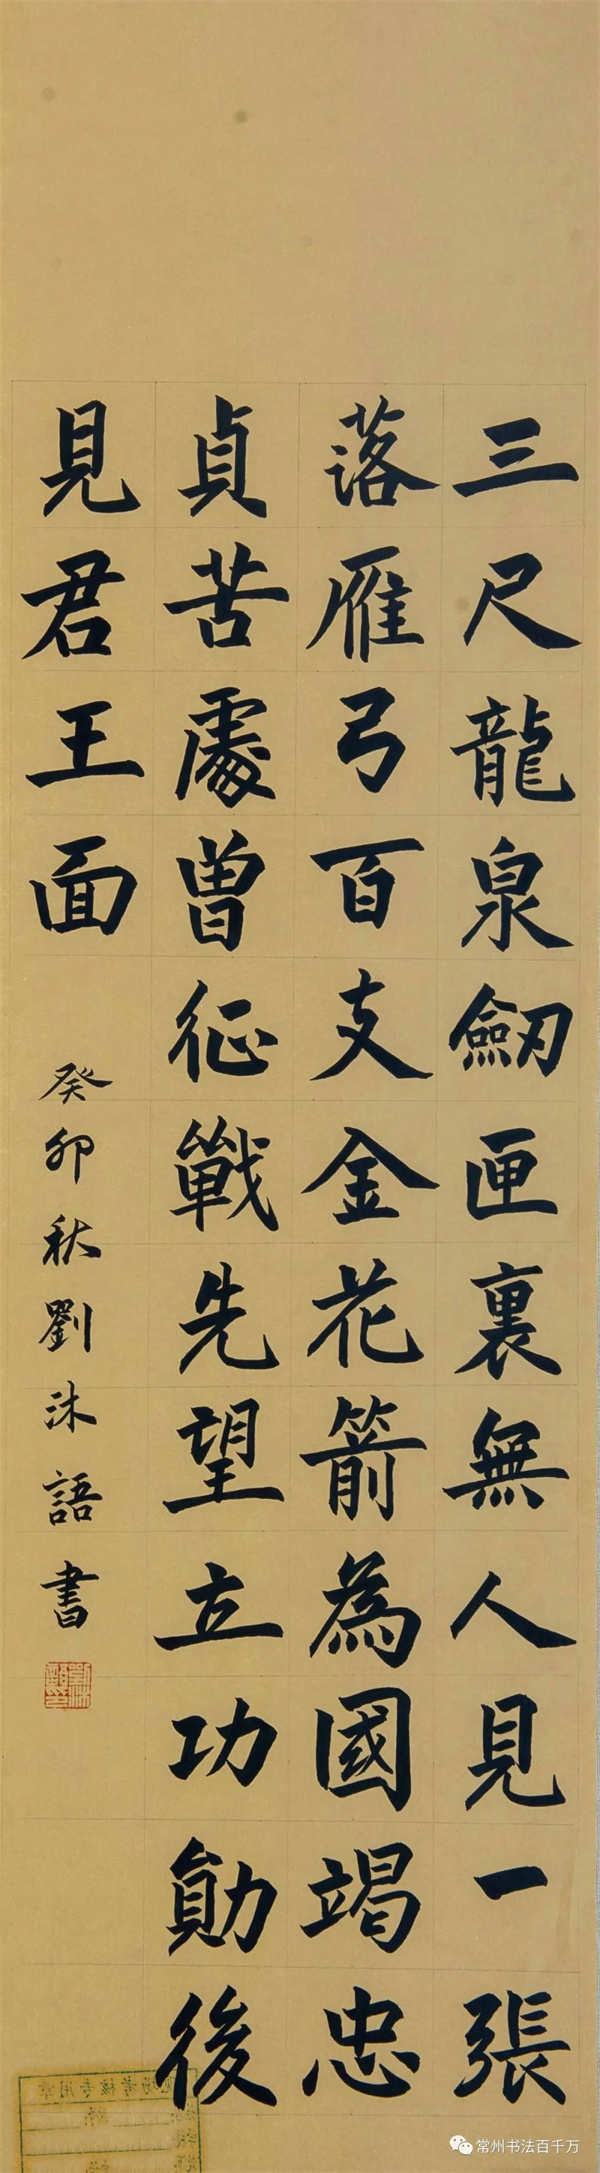 三尺龍泉劒匣裏無人見一張
落雁弓百支金花箭為國竭忠
貞苦處曽征戰先望立功勛後
見君王面
癸卯秋劉沐語書
常州书法百千万